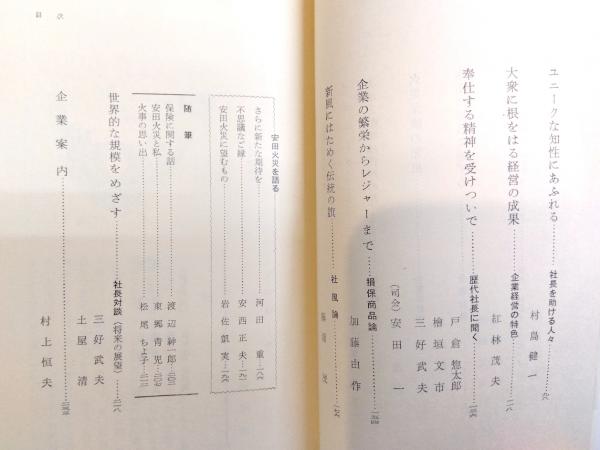 ユニークな知性にあふれる……社長を助ける人々
村島健一…九八
大衆に根をはる経営の成果……企業経営の特色
紅林茂夫…一一八
奉仕する精神を受けついで……歴代社長に聞く
戸倉惣太郎
檜垣文市
三好武夫
(司会) 安田 一…一三六
企業の繁栄からレジャーまで……損保商品論
加藤由作…一五四
新風にはためく伝統の旗……社風論
安田火災を語る
さらに新たな期待を……河田 重…一八八
不思議なご縁……安西正夫…一九一
安田火災に望むもの……岩佐凱実…一九六
随筆
保険に関する話……渡辺紳一郎…二〇三
安田火災と私……東郷青児…二〇七
火事の思い出……松尾ちよ子…二一三
世界的な規模をめざす……社長対談(将来の展望)…二一八
三好武夫
土屋 清
企業案内……
村上恒夫
目次